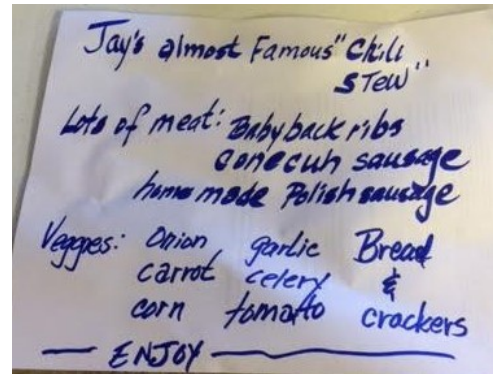 Jay's almost Famous "Chili
STEW"
Lots of meat: Baby back ribs
conecuh sausage
home made Polish sausage
Veggies: Onion garlic Bread
carrot celery &
corn tomatto crackers
— ENJOY —